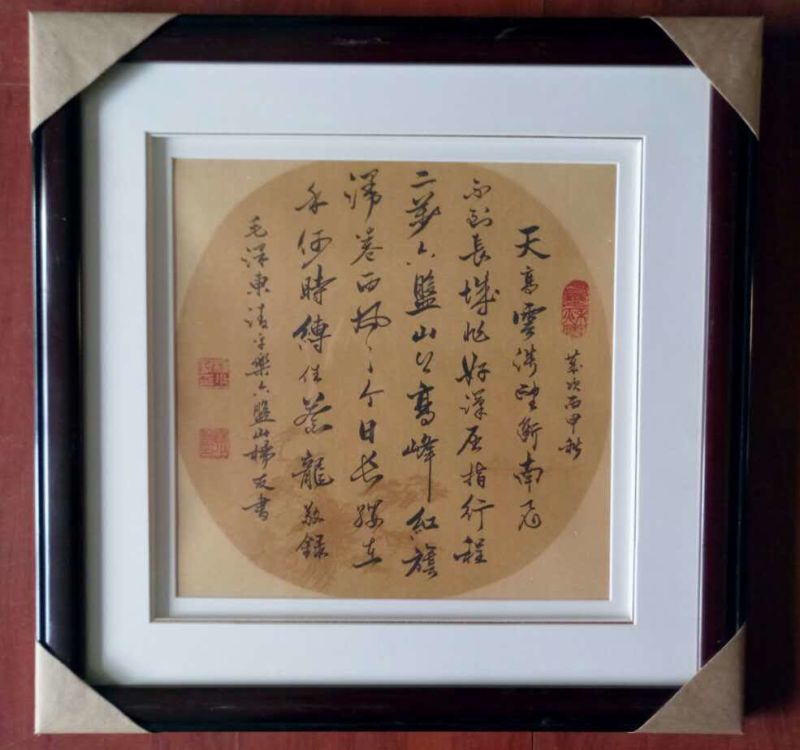 歲次丙申秋
天高雲淡望斷南飛
不到長城非好漢屈指行程
二萬六盤山上高峰紅旗
漫卷西風今日長纓在
手何時縛住蒼龍敬錄
毛澤東清平樂六盤山楊友書